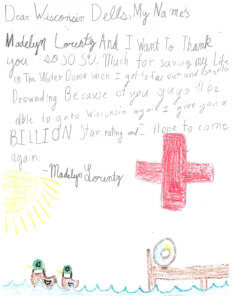 Dear Wisconsin Dells, My Name's
Madelyn Lorentz And I Want To Thank
you so so so Much for saving my Life
in The Water Dome when I got to far out and started
Drownding Because of you guys I'll be
able to go to Wisconsin again I give you a
BILLION Star rating and I Hope to come
again.
-Madelyn Lorentz